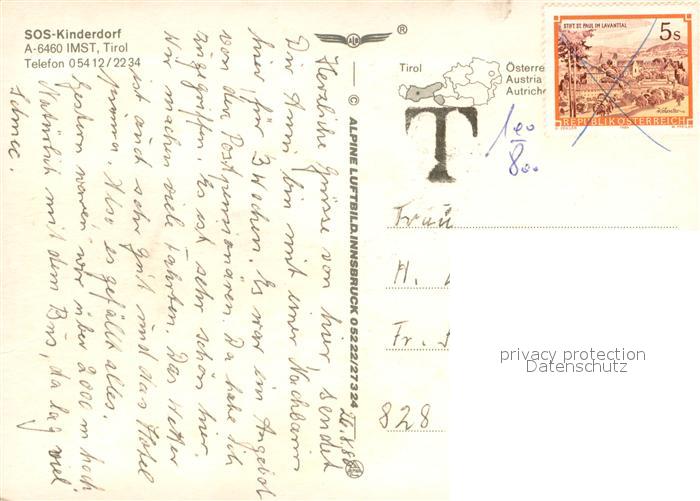 SOS-Kinderdorf
A-6460 IMST, Tirol
Telefon 05412/2234
ALB
®
Tirol
Österre
Austria
Autriche
STIFT ST. PAUL IM LAVANTTAL
5s
REPUBLIK ÖSTERREICH
T
100
800
© ALPINE LUFTBILD, INNSBRUCK 05222/27324
26.8.88
Herzliche Grüsse von hier sendet
Dir Anni bin mit einer Nachbarin
hier für 3 Wochen. Es war im Angebot
von den Postpensionären. Da habe ich
zugegriffen. Es ist sehr schön hier.
Wir machen viele Fahrten. Das Wetter
ist auch sehr gut und das Hotel
prima. Also es gefällt alles.
Gestern waren wir über 2000 m hoch
Natürlich mit dem Bus, da lag viel
Schnee.
Frau
H.
Fr.
828
privacy protection
Datenschutz